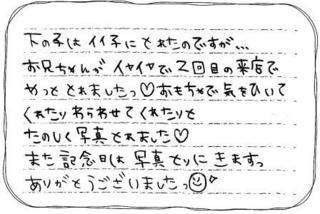 下の子はイイ子にとれたのですが、、、
お兄ちゃんがイヤイヤで2回目の来店で
やっと とれましたっ♡おもちゃで気をひいて
くれたり わらわせてくれたりと
たのしく写真とれました♡
また記念日は 写真とりに きますっ
ありがとうございましたっ